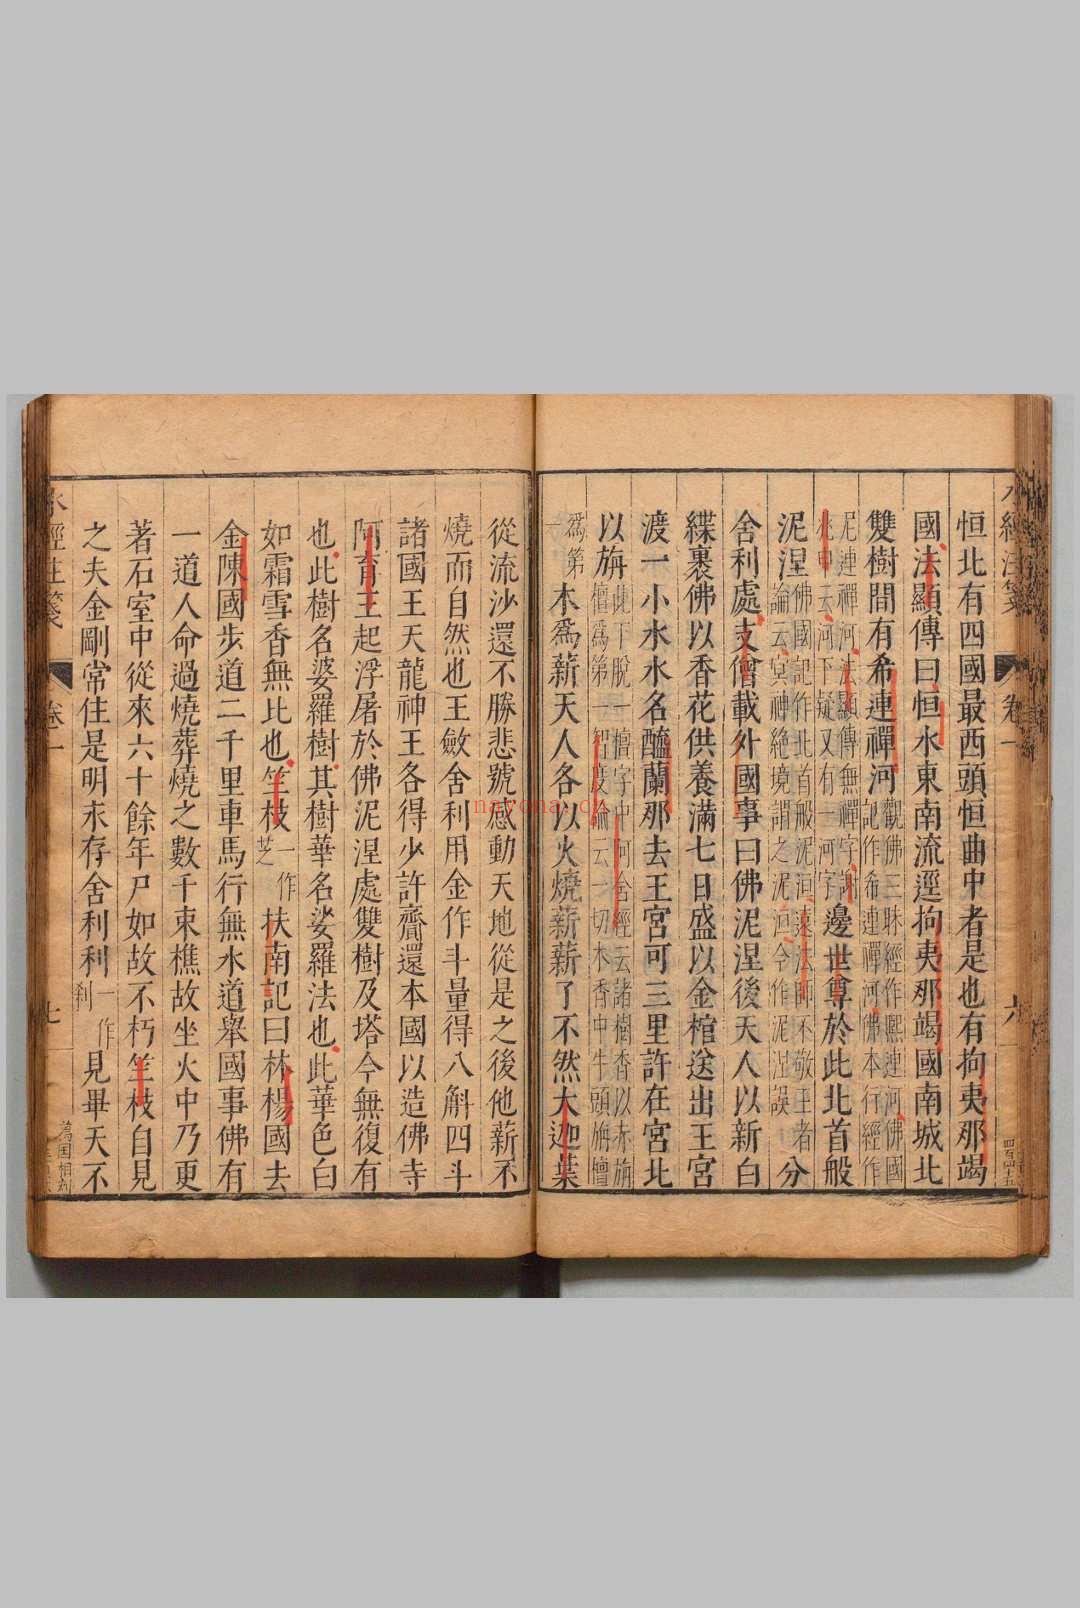 恒北有四國最西頭恒曲中者是也有拘夷那竭
國法顯傳曰恒水東南流逕拘夷那竭國南城北
雙樹間有希連禪河觀佛三昧經作熙連河佛國記作希連禪河佛本行經作
尼連禪河法顯傳無禪字謝兆申云河下疑又有一河字邊世尊於此北首般
泥涅佛國記作北首般泥洹遠法師不敬王者論云冥神絶境謂之泥洹今作泥涅誤分
舍利處支僧載外國事曰佛泥涅後天人以新白
緤裹佛以香花供養滿七日盛以金棺送出王宮
渡一小水水名醯蘭那去王宮可三里許在宮北
以旃此下脫一檀字中阿含經云諸樹香以赤旃檀爲第一智度論云一切木香中牛頭旃檀
爲第一木爲薪天人各以火燒薪薪了不然大迦葉
從流沙還不勝悲號感動天地從是之後他薪不
燒而自然也王斂舍利用金作斗量得八斛四斗
諸國王天龍神王各得少許齎還本國以造佛寺
阿育王起浮屠於佛泥涅處雙樹及塔今無復有
也此樹名娑羅樹其樹華名娑羅法也此華色白
如霜雪香無比也竺枝一作芝扶南記曰林楊國去
金陳國步道二千里車馬行無水道舉國事佛有
一道人命過燒葬燒之數千束樵故坐火中乃更
著石室中從來六十餘年尸如故不朽竺枝自見
之夫金剛常住是明永存舍利利一作刹見畢天不
水經注箋
卷一
六
水經注箋
卷一
七
navona.cn